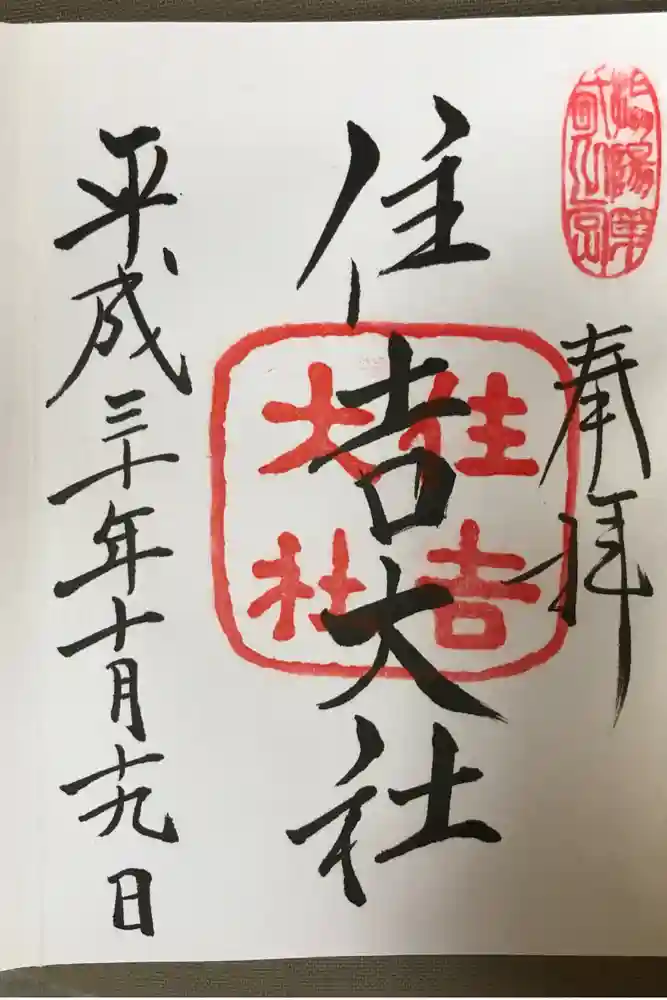 陽第
奉拝
住吉大社
住吉
大社
平成三十年十月十九日